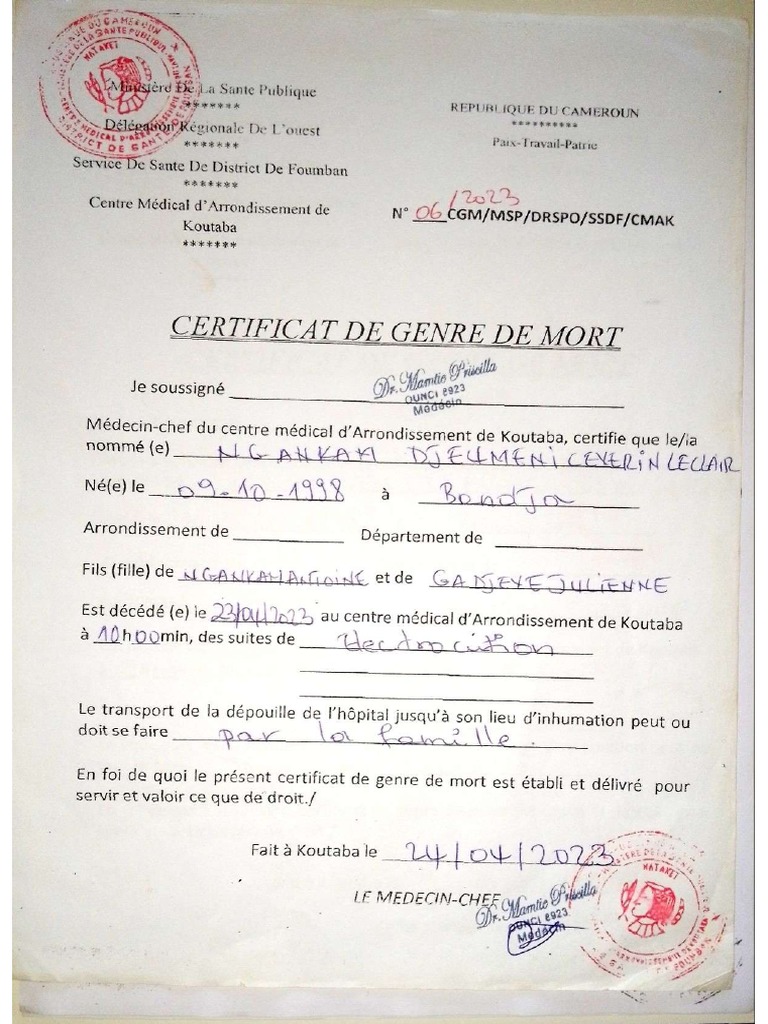 Ministère De La Sante Publique
*******
Délégation Régionale De L'ouest
*******
Service De Sante De District De Foumban
*******
Centre Médical d'Arrondissement de
Koutaba
*******
REPUBLIQUE DU CAMEROUN
**********
Paix-Travail-Patrie
N° 06/2023 CGM/MSP/DRSPO/SSDF/CMAK
CERTIFICAT DE GENRE DE MORT
Je soussigné Dr. Mamtie Priscilla
OUNCI 8923
Médecin
Médecin-chef du centre médical d'Arrondissement de Koutaba, certifie que le/la
nommé (e) NGANKAM DJEUMENI CEVERIN LECLAIR
Né(e) le 09-10-1998 à Bandja
Arrondissement de Département de
Fils (fille) de NGANKAM ANTOINE et de GADJEYE JULIENNE
Est décédé (e) le 23/04/2023 au centre médical d'Arrondissement de Koutaba
à 10h00min, des suites de Electrocution
Le transport de la dépouille de l'hôpital jusqu'à son lieu d'inhumation peut ou
doit se faire par la famille.
En foi de quoi le présent certificat de genre de mort est établi et délivré pour
servir et valoir ce que de droit./
Fait à Koutaba le 24/04/2023
LE MEDECIN-CHEF
Dr. Mamtie Priscilla
OUNCI 8923
Médecin